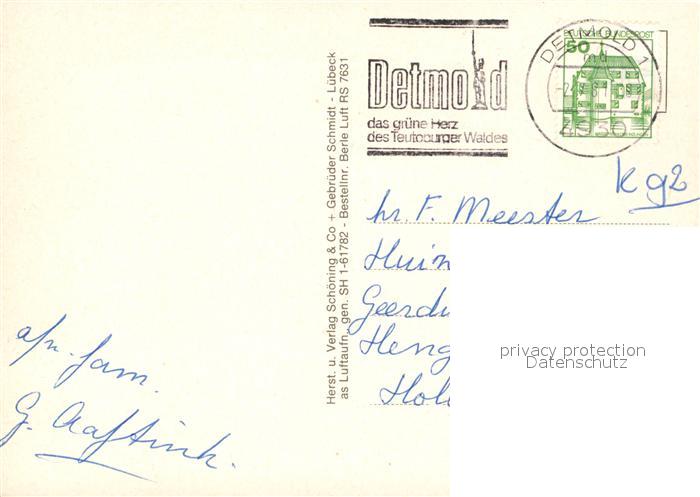 DEUTSCHE BUNDESPOST
50
DETMOLD 1
4930
Detmold
das grüne Herz
des Teutoburger Waldes
Herst. u. Verlag Schöning & Co + Gebrüder Schmidt - Lübeck
as Luftaufn. gen. SH 1-61782 - Bestellnr. Berle Luft RS 7631
kg2
hr. F. Meester
Huin
Geerdi
Heng
Hol
privacy protection
Datenschutz
afz. fam.
G. Aaftink.